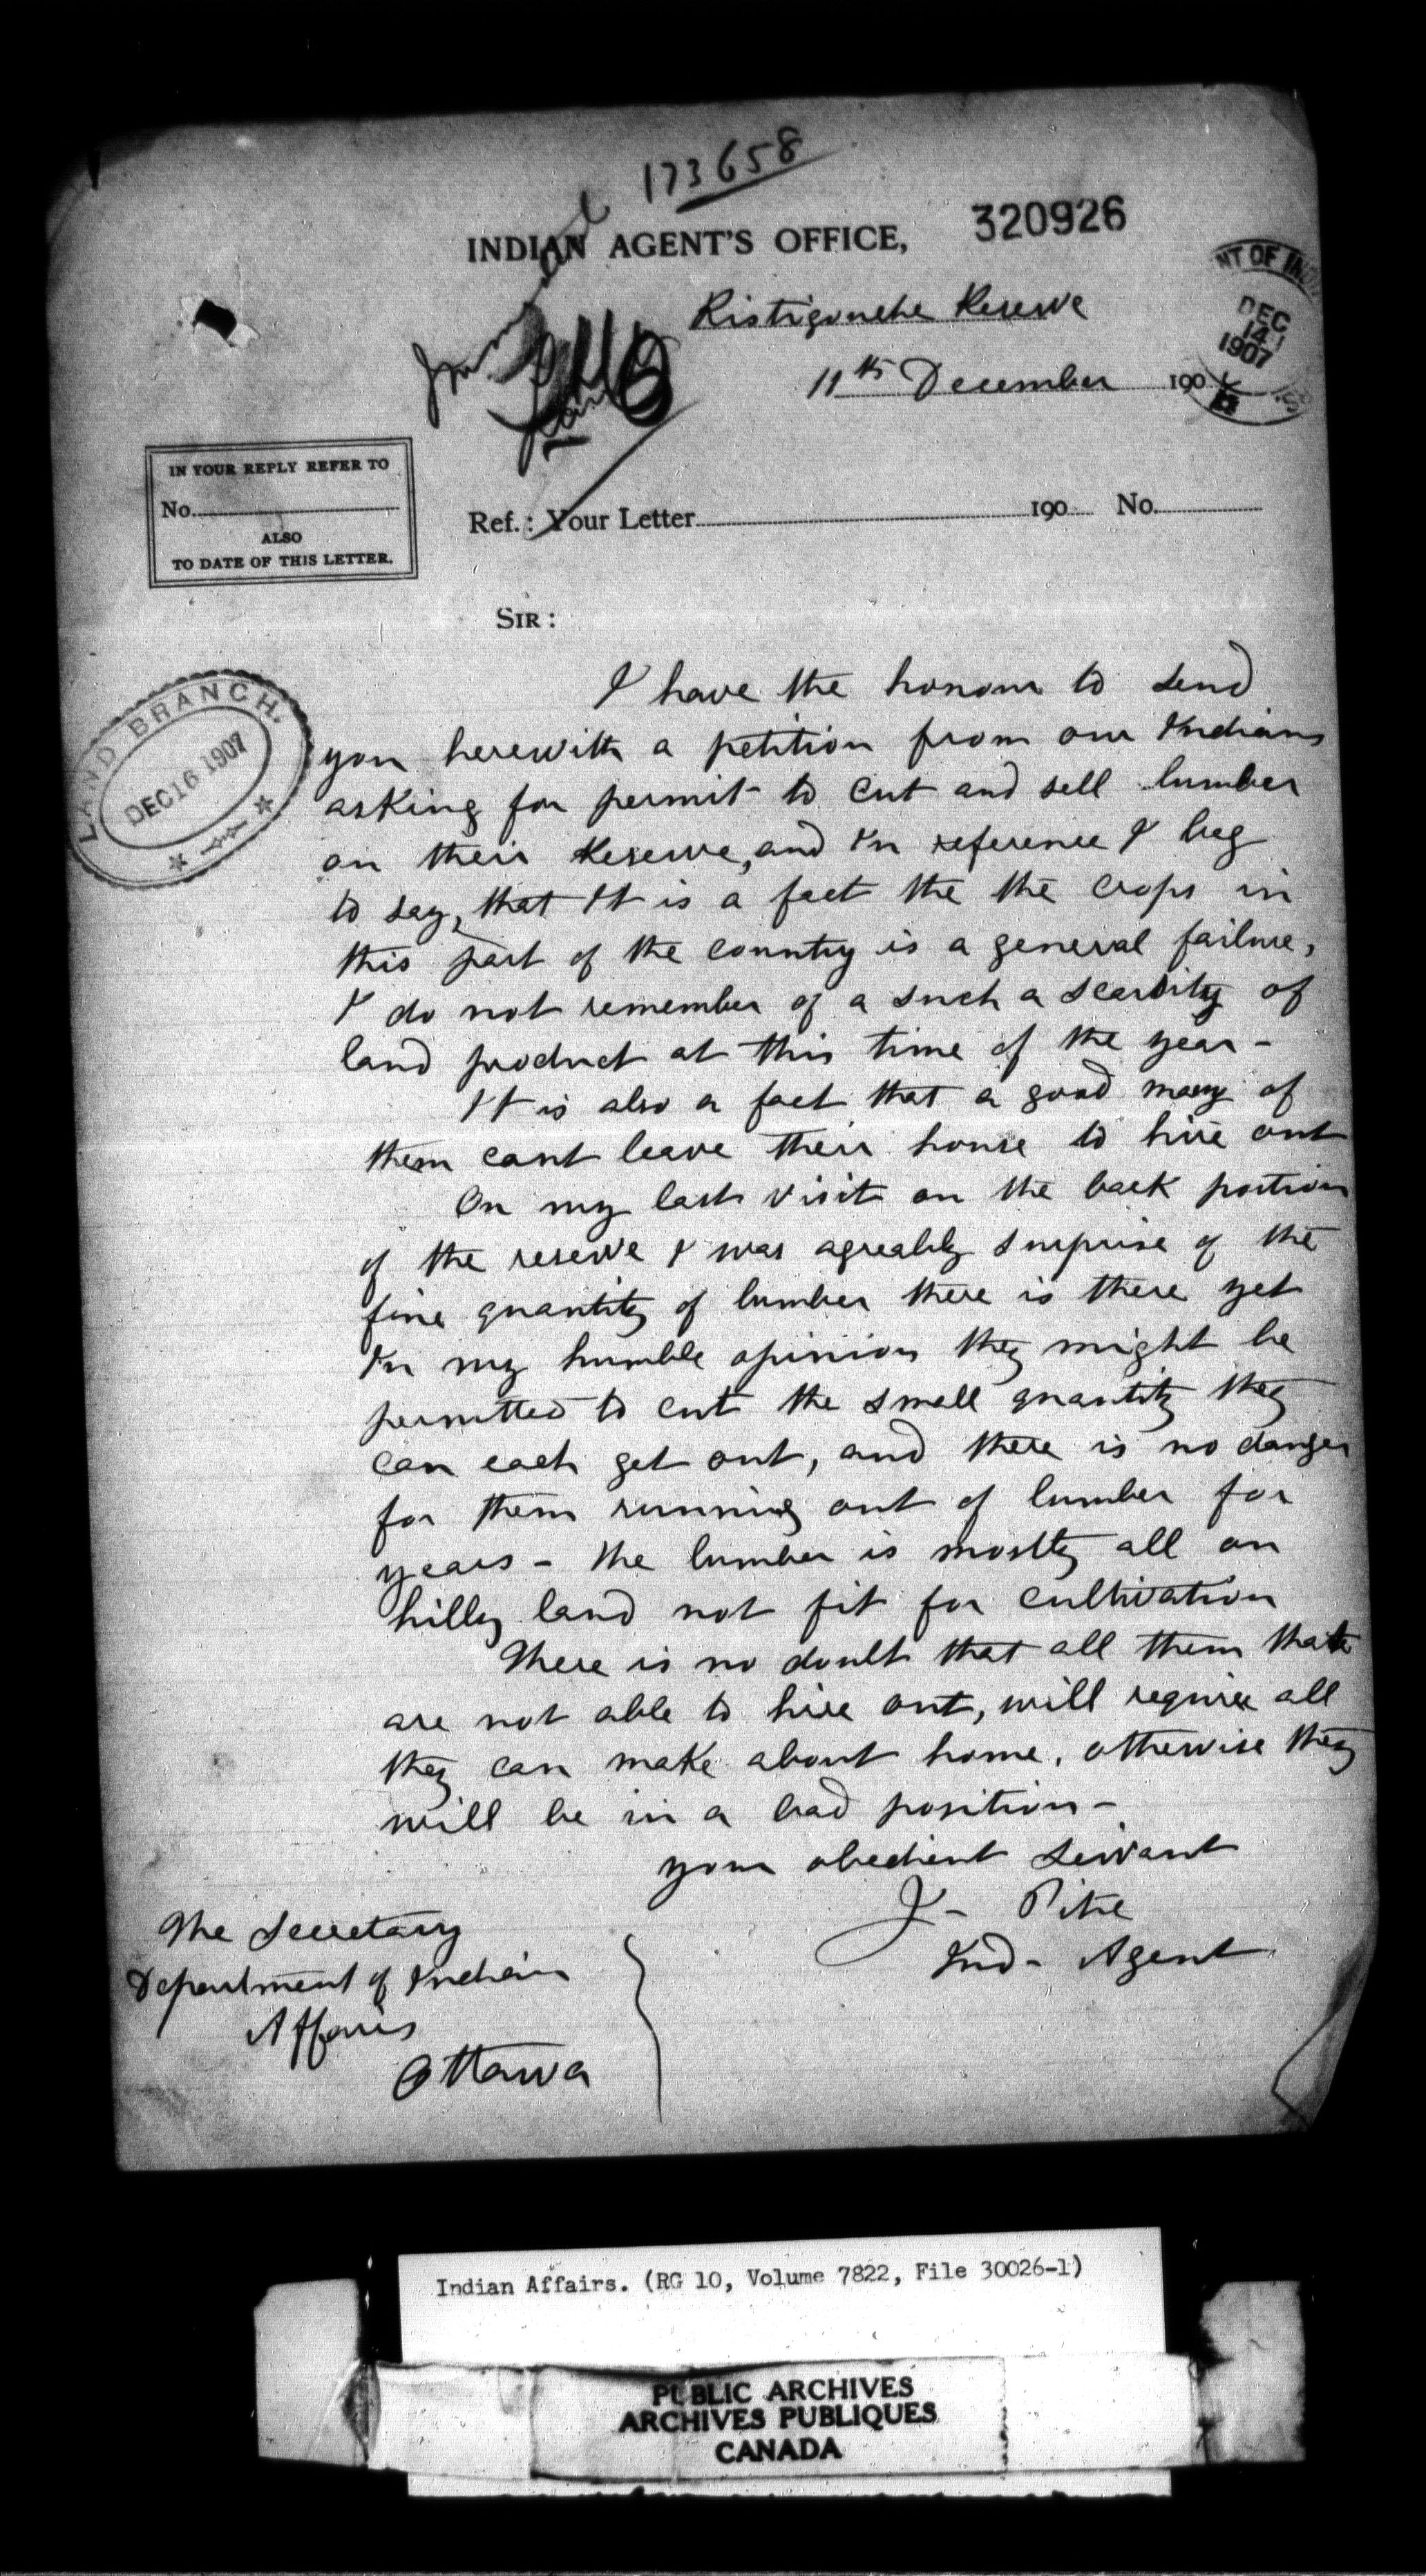 173658
INDIAN AGENT'S OFFICE,
320926
NT OF IN
DEC
14
1907
Ristigouche Reserve
11th December 1907
IN YOUR REPLY REFER TO
No.
ALSO
TO DATE OF THIS LETTER.
Ref.: Your Letter 190 No.
SIR:
LAND BRANCH.
DEC 16 1907
I have the honour to send
you herewith a petition from our Indians
asking for permit to cut and sell lumber
on their Reserve, and in reference I beg
to say, that it is a fact the the crops in
this part of the country is a general failure,
I do not remember of a such a scarsity of
land product at this time of the year -
It is also a fact that a good many of
them cant leave their house to hire out
On my last visit on the back portion
of the reserve I was agreably surprise of the
fine quantity of lumber there is there yet
In my humble opinion they might be
permitted to cut the small quantity they
can each get out, and there is no danger
for them running out of lumber for
years - the lumber is mostly all on
hilly land not fit for cultivation
There is no doubt that all them that
are not able to hire out, will require all
they can make about home, otherwise they
will be in a bad position -
your obedient servant
J - Pitre
Ind - Agent
The Secretary
Department of Indian
Affairs
Ottawa
Indian Affairs. (RG 10, Volume 7822, File 30026-1)
PUBLIC ARCHIVES
ARCHIVES PUBLIQUES
CANADA